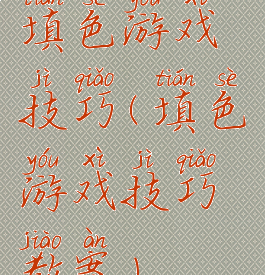 tián sè yóu xì
填色游戏
jì qiǎo tián sè
技巧(填色
yóu xì jì qiǎo
游戏技巧
jiào àn
教案)